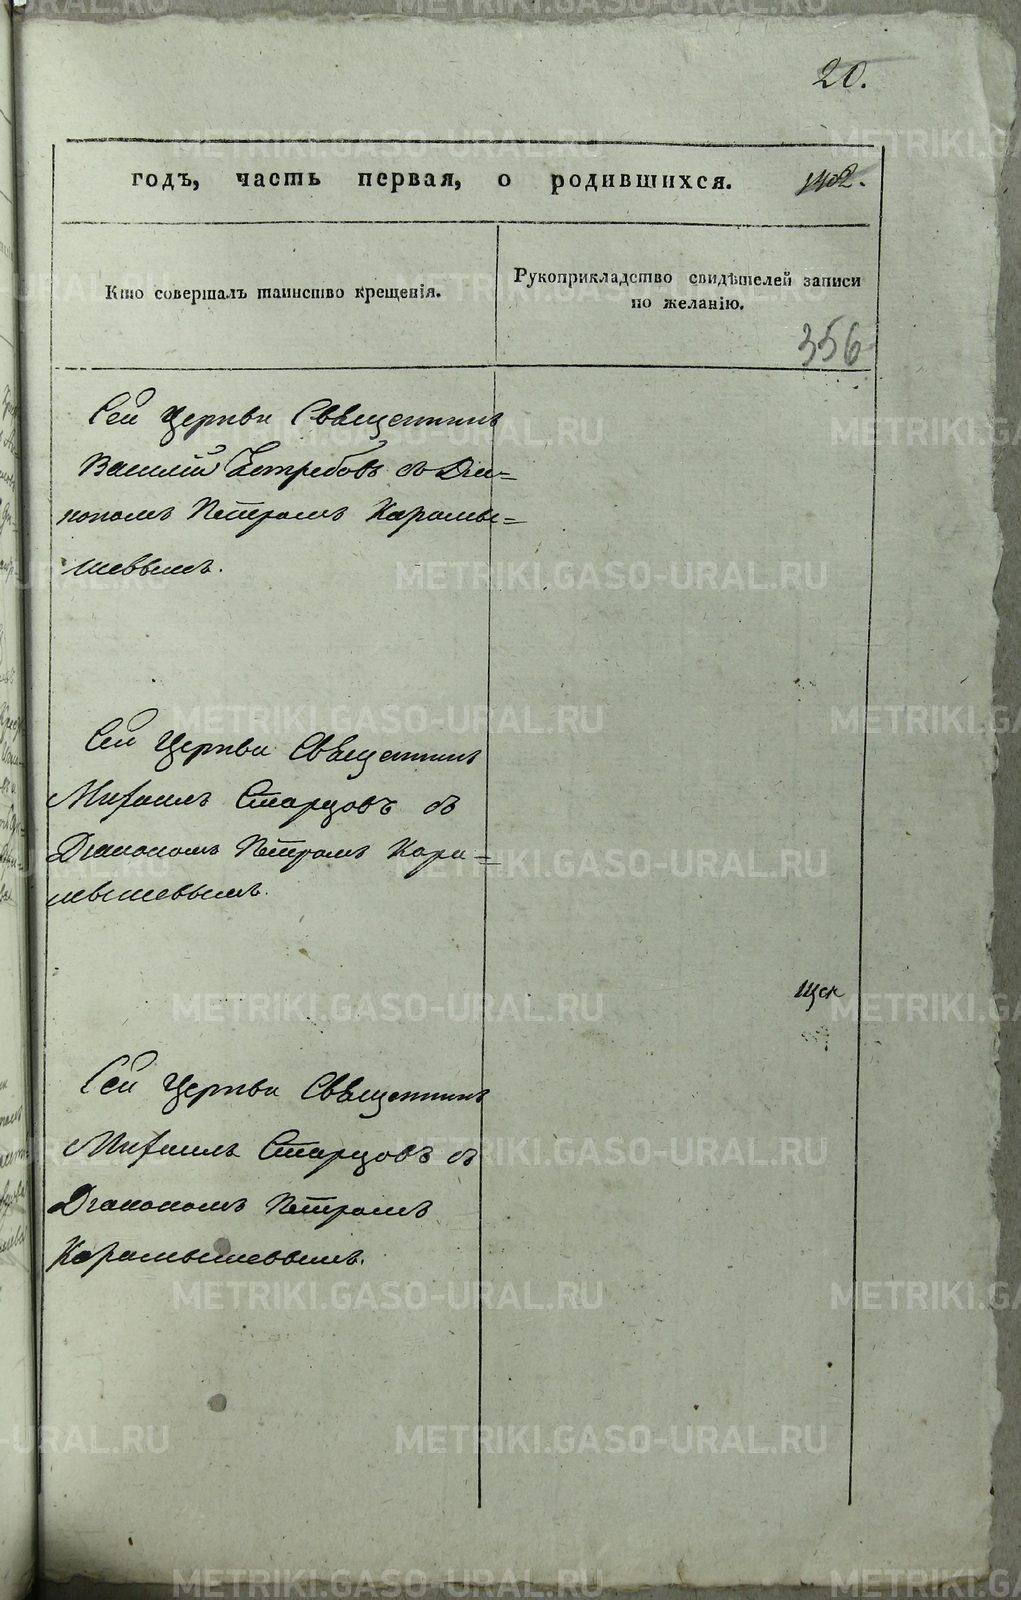 20.
годъ, часть первая, о родившихся.
Кто совершалъ таинство крещенія.
Рукоприкладство свидѣтелей записи
по желанію.
356
Сей Церкви Священникъ
Василій Ястребовъ съ Діа=
кономъ Петромъ Карамы=
шевымъ.
Сей Церкви Священникъ
Михаилъ Старцовъ съ
Діакономъ Петромъ Кара=
мышевымъ.
Сей Церкви Священникъ
Михаилъ Старцовъ съ
Діакономъ Петромъ
Карамышевымъ.
METRIKI.GASO-URAL.RU